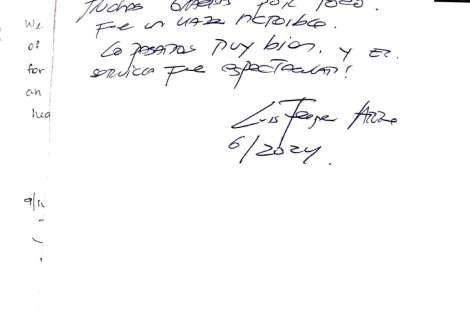 Muchas gracias por todo.
Fue un viaje increible.
Lo pasamos muy bien, y el
servicio fue espectacular!
Luis Felipe
6/2024.
We
of
for
an